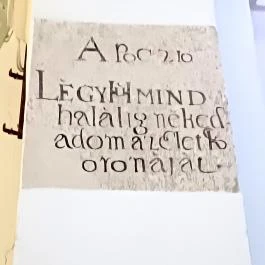 APOC 2 10
LÈGYHIMIND
halàlig nèked
adom az èletko
oronàjàt.